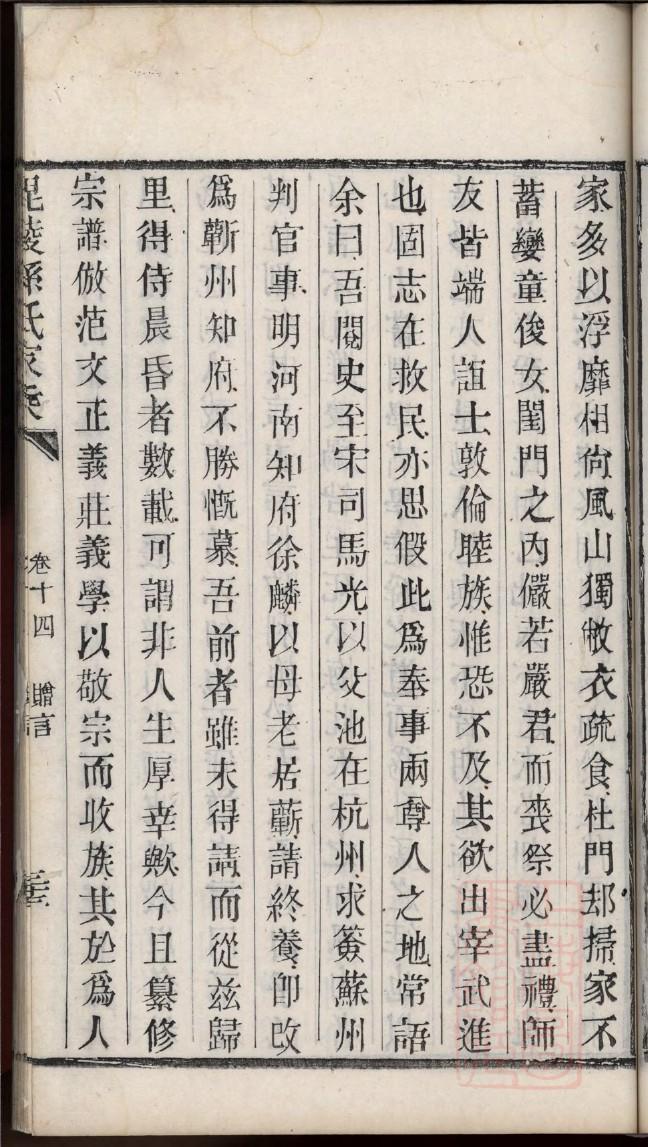 家多以浮靡相尙風山獨敝衣疏食杜門却掃家不
蓄孌童俊女閨門之內儼若嚴君而喪祭必盡禮師
友皆端人誼士敦倫睦族惟恐不及其欲出宰武進
也固志在救民亦思假此爲奉事兩尊人之地常語
余曰吾閱史至宋司馬光以父池在杭州求簽蘇州
判官事明河南知府徐麟以母老居蘄請終養卽改
爲蘄州知府不勝慨慕吾前者雖未得請而從兹歸
里得侍晨昏者數載可謂非人生厚幸歟今且纂修
宗譜倣范文正義莊義學以敬宗而收族其於爲人
毘陵孫氏家乘
卷十四 贈言